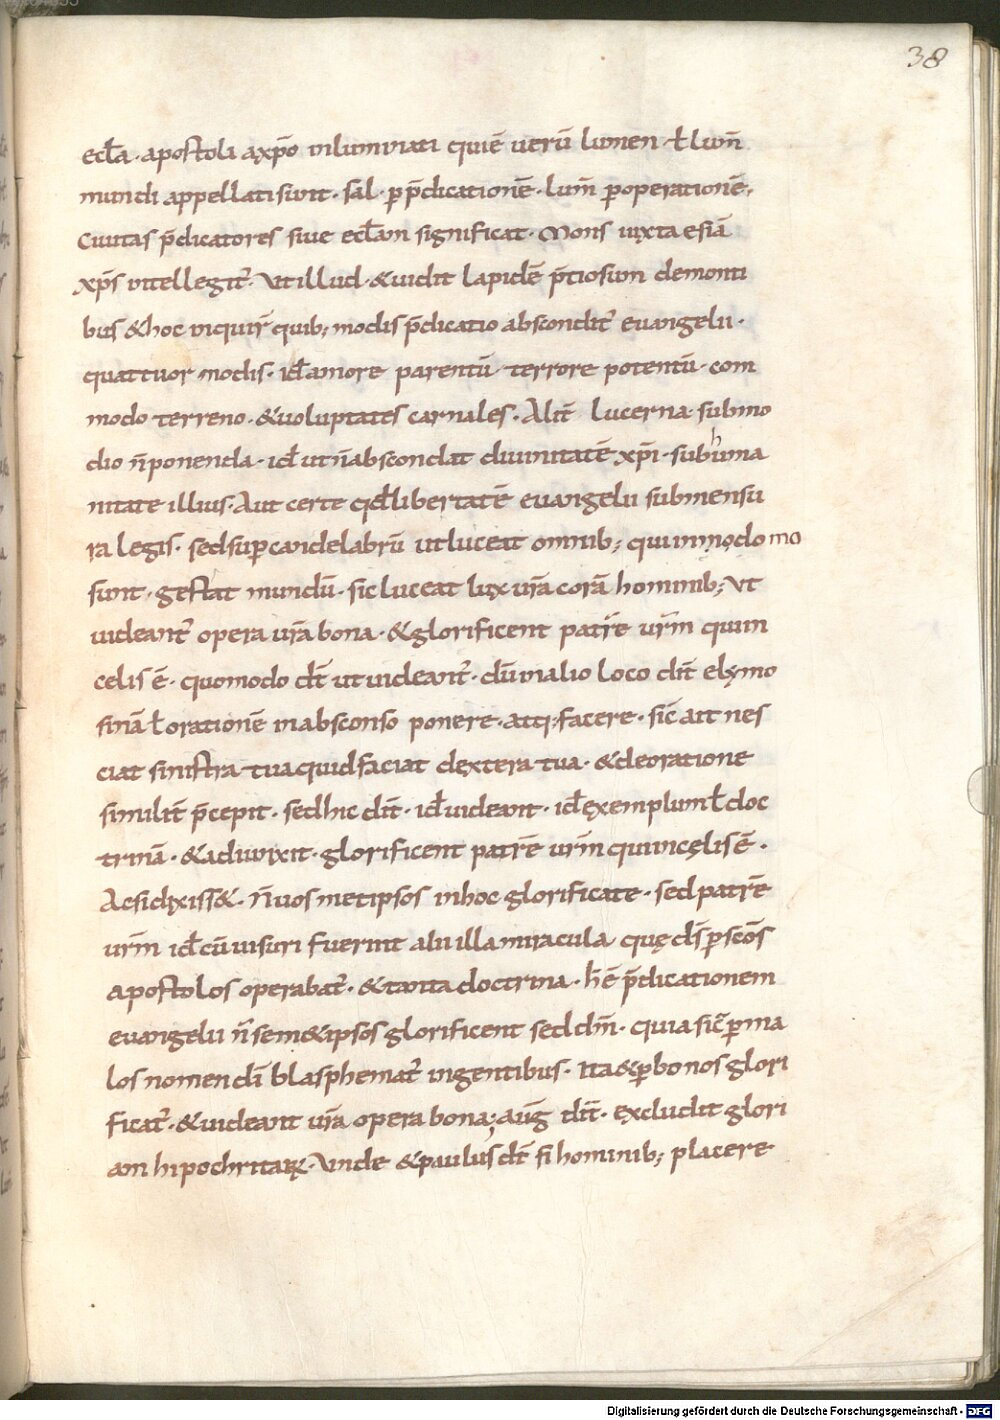 38
eccła · apostoli axp̄o inluminati quiē uerū lumen · ƚ lum̄
mundi appellati sunt · sal · p p̄dicationē · lum̄ p operationē ·
Ciuitas p̄dicatores siue eccłam significat · Mons iuxta esiā
xp̄s intellegit̄ · Ut illud · & uidit lapidē p̄tiosum de monti
bus & hoc inquir̄ quib; modis p̄dicatio abscondit̄ euangelii ·
quattuor modis · id amore parentū · terrore potentū · com
modo terreno · & uoluptates carnales · Alit̄ lucerna submo
dio n̄ ponenda · id ut n̄ abscondat diuinitatē xp̄i · sub huma
nitate illius · Aut certe qđ libertatē euangelii sub mensu
ra legis · sed sup candelabrū ut luceat omnib; qui in modo mo
sunt · gestat mundū · sic luceat lux ur̄a corā hominib; Ut
uideant̄ opera ur̄a bona · & glorificent patrē ur̄m qui in
celis ē · quomodo dit̄ ut uideant̄ · dū in alio loco dit̄ elymo
sinā ƚ orationē in absconso ponere · atq; facere · sic̄ ait nes
ciat sinistra tua quid faciat dextera tua · & de oratione
similit̄ p̄cepit · sed hic dit̄ · id uideant · id exemplum ƚ doc
trinā · & adiunxit · glorificent patrē ur̄m qui in cęlis ē ·
Ac si dixiss& · n̄ uos met ipsos in hoc glorificate · sed patrē
ur̄m id cū uisuri fuerint alii illa miracula quę d̄s p sc̄os
apostolos operabat̄ · & tanta doctrina · h̄ ē p̄dicationem
euangelii n̄ sem& ipsos glorificent sed dm̄ · quia sic̄ p ma
los nomen dī blasphemat̄ in gentibus · Ita & p bonos glori
ficat̄ · & uideant ur̄a opera bona; auḡ dit̄ · excludit glori
am hipochritarꝝ · Unde & paulus dit̄ si hominib; placere
Digitalisierung gefördert durch die Deutsche Forschungsgemeinschaft - DFG